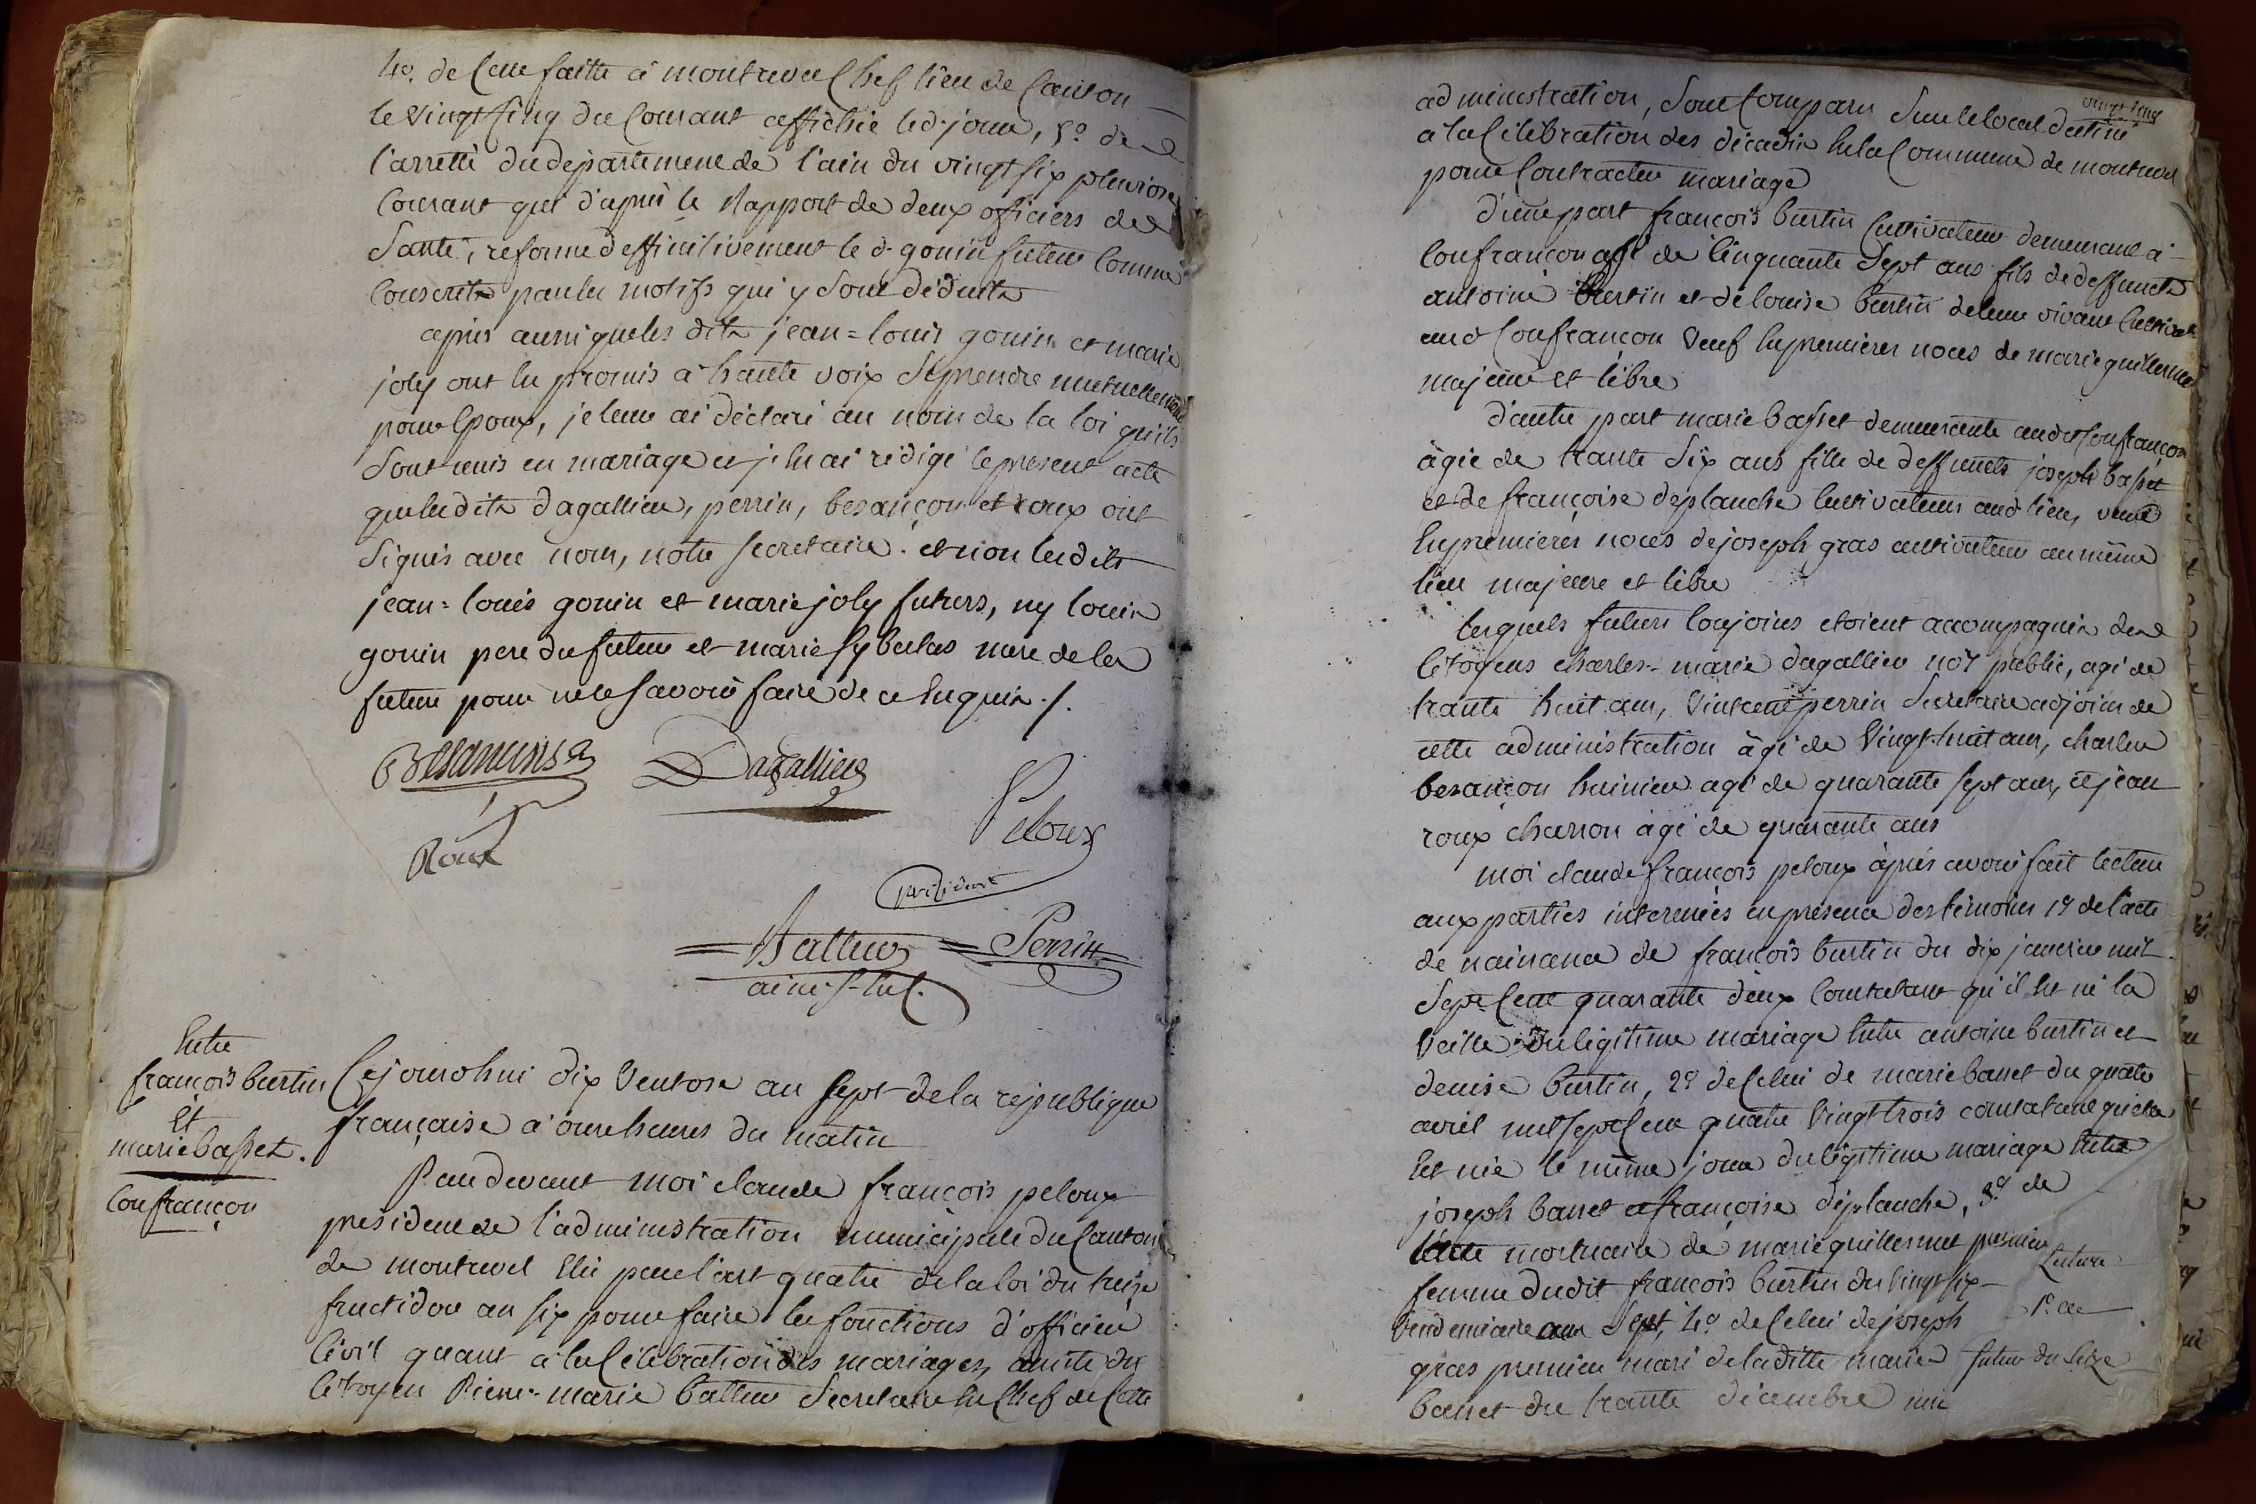 4o. de celle faitte à montrevel chef lieu de canton
le vingt cinq du courant affichée led. jour, 5o de
l'arretté du departement de l'ain du vingt six pluviose
courant qui d'après le rapport de deux officiers de
santé, reforme deffinitivement le d. gonin futeur comme
conscrits par les motifs qui y sont déduits
après aussi que les dits jean=louis gonin et marie
joly ont eu promis à haute voix se prendre mutuellement
pour epoux, je leur ai déclaré au nom de la loi qu'ils
sont unis en mariage et j'en ai rédigé le présent acte
que lesdits dagallier, perrin, besançon et roux ont
signés avec nous, notre secretaire. et non lesdits
jean=louis gonin et marie joly futurs, ny louis
gonin pere du futeur et marie sybelas mere de la
future pour ne le savoir faire de ce enquis ./.
Besançons
Dagallier
Roux
Peloux
président
Battur
Perrin
Entre
françois burtin
Et
marie basset.
Confrançon
Cejourd'hui dix ventose an sept de la république
française à onze heures du matin
Pardevant moi claude françois peloux
président de l'administration municipale du canton
de montrevel élu par l'art quatre de la loi du treize
fructidor an six pour faire les fonctions d'officier
civil quant à la célébration des mariages, assisté du
citoyen Pierre-marie battur secretaire en chef de cette
vingt cinq
administration, sont comparu sur le local destiné
à la célébration des décadis en la commune de montrevel
pour contracter mariage
d'une part françois burtin cultivateur demeurant à
confrançon agé de cinquante sept ans fils de deffuncts
antoine burtin et de louise burtin de leur vivant cultivat
aud confrançon veuf en premieres noces de marie guillermet
majeur et libre
d'autre part marie basset demeurante audit confrançon
âgée de trante six ans fille de deffuncts joseph basset
et de françoise deplanche cultivateurs aud lieu, veuve
en premieres noces de joseph gras cultivateur au même
lieu majeure et libre
lesquels futeurs conjoins etoient accompagnés des
citoyens charles-marie dagallier nore public, agé de
trante huit ans, vincent perrin secretaire adjoint de
cette administration âgé de vingt-huit ans, charles
besançon huissier agé de quarante sept ans, et jean
roux charron âgé de quarante ans
moi claude françois peloux après avoir fait lecture
aux parties interessées en présence des témoins 1o de l'acte
de naissance de françois burtin du dix janvier mil
sept cent quarante deux constatant qu'il est né la
veille du légitime mariage entre antoine burtin et
denise burtin, 2o de celui de marie basset du quatre
avril mil sept cent quatre vingt trois constatant qu'elle
est née le même jour du légitime mariage entre
joseph basset et françoise deplanche, 3o de
l'acte mortuaire de marie guillermet premiere
femme dudit françois burtin du vingt six
vendemiaire an sept, 4o de celui de joseph
gras premier mari de la ditte marie
basset du trante décembre mil
Lecture
1o. de
futur du seize